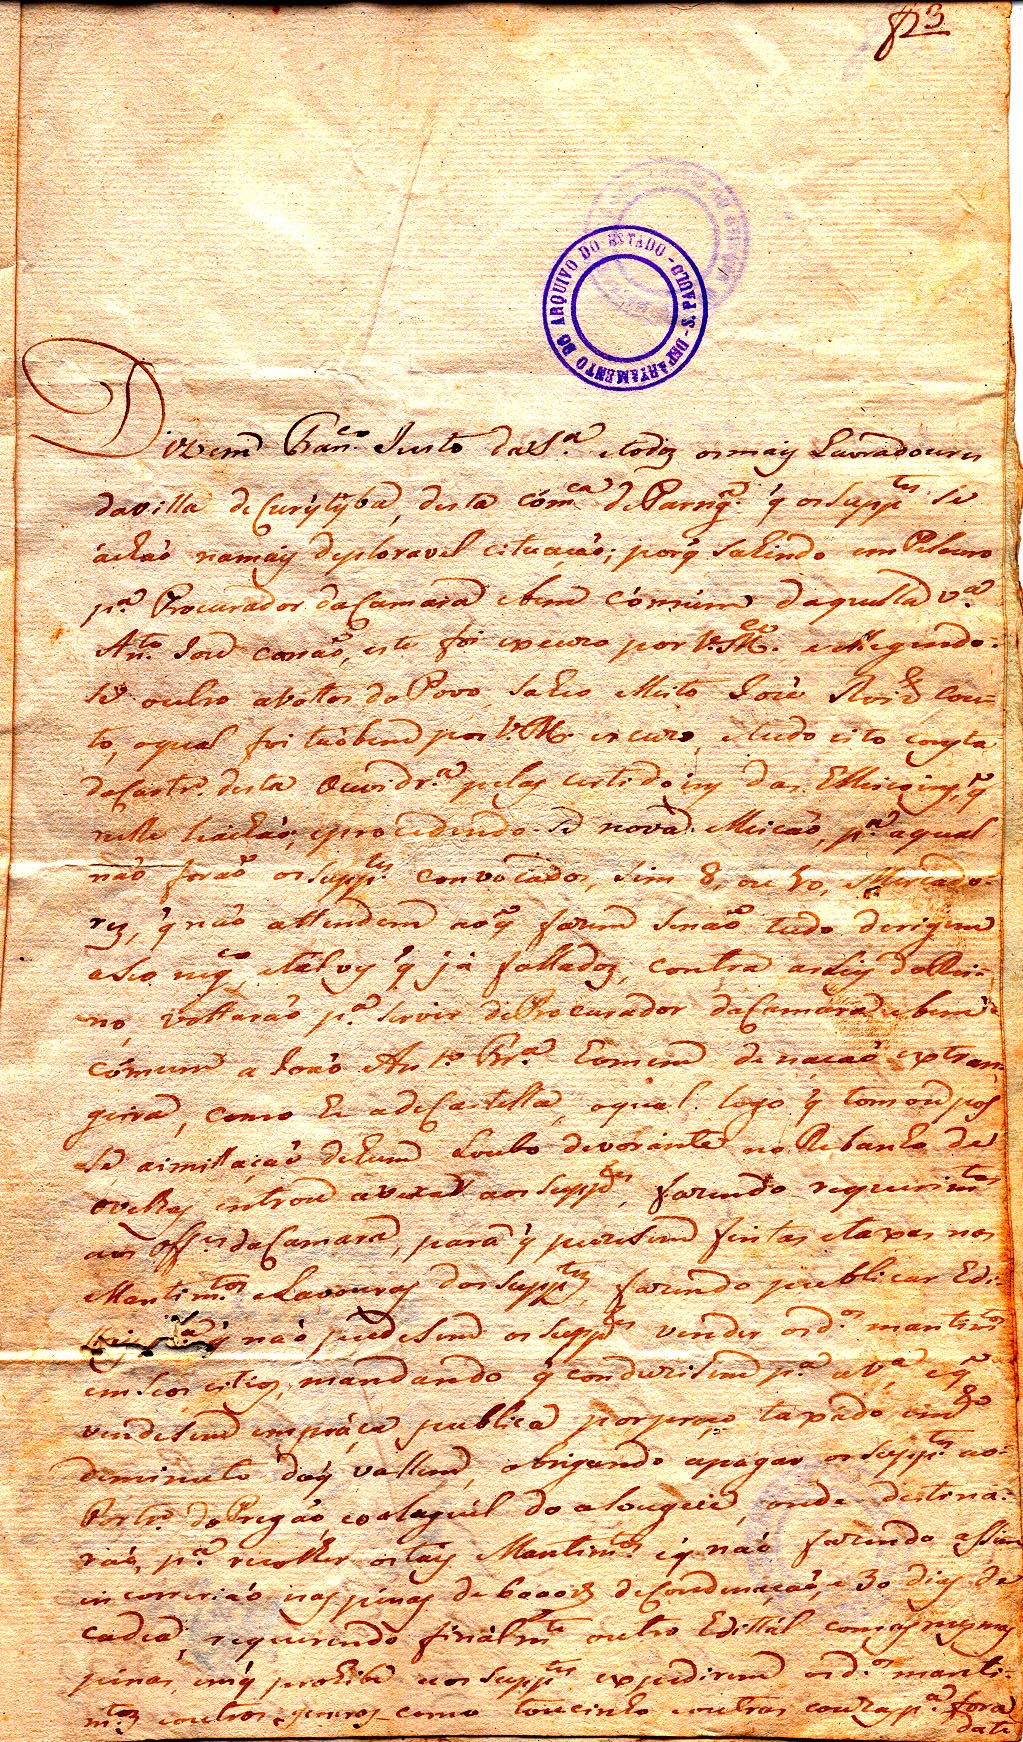 f 23
DEPARTAMENTO DO ARQUIVO DO ESTADO - S. PAULO -
Dizem Fran.co Justo da S.a e todos os mais Lavradoures
da villa de Curýtýba, desta cóm.ca de Parng.a q' os supp.tes se
áchaó na mais deploravel cituaçáo; porq' Sahindo em Pelouro
p.a Procurador da Camara e bem cómúm daquella v.a
Ant.o José este foi excuzo por V. M.ce e ellegendo-
se outro a vottos do Povo, Sahio elleito José Roiz Cou-
to, o qual foi taóbem por V. M. excuzo, e tudo isto consta
do Cartr.o desta Ouvidr.a pelas certidoins das Elleicoins, q'
nelle se acháo; e procedendo-se nova elleicáo, p.a a qual
náo foráo os supp.tes convocados, Sim 8, ou 10, Mercado-
res, q' náo attendem ao q' fazem senáo tudo derigem
a seo neg.co, e talvez q' já fallados, contra as Leis do Rei-
no, vottaráo p.a servir de Procurador da Camara e bem
cómum a Joáo Ant.o homem de naçáo extran-
geira, como he a de Castella, o qual logo q' tomou pos-
se a imittaçáo de hum Loubo devorante no Rebanho de
ovelhas entrou a vexar aos supp.tes, fazendo requerim.tos
aos off.es da Camara, para q' puzesem fintas e taxas nos
Mantim.tos e Lavouras dos supp.tes, fazendo publicar Edi-
p.a q' náo pudesem os supp.tes vender os d.os mantim.tos
em seos citios, mandando q' conduzisem p.a a V.a, e q'
vendesem em práça publica por preço taxado,
deminuto do q' vallem, obrigando a pagar os supp.tes ao
Portr.o do Pregáo, e o alaguél do alougue, onde destina-
ráo, p.a recolher os tais Mantim.tos e q' náo fazendo assim
incorreriáo nas pénas de 6000 r.s de Condenaçáo, e 30 dias de
cadea, requerendo finalm.te outro Edittál com as mesmas
pénas, em q' prohibe aos supp.tes expedirem os d.os manti-
m.tos e outros generos como toucinho e outras couzas p.a fora